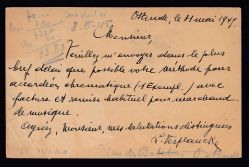 Ostende, le 31 mai 1945
Monsieur,
Veuillez m'envoyer dans le plus
bref délai que possible votre méthode pour
accordéon chromatique (1 exempl.) avec
facture et remise habituel pour marchand
de musique.
Agréez, Monsieur mes salutations distinguées